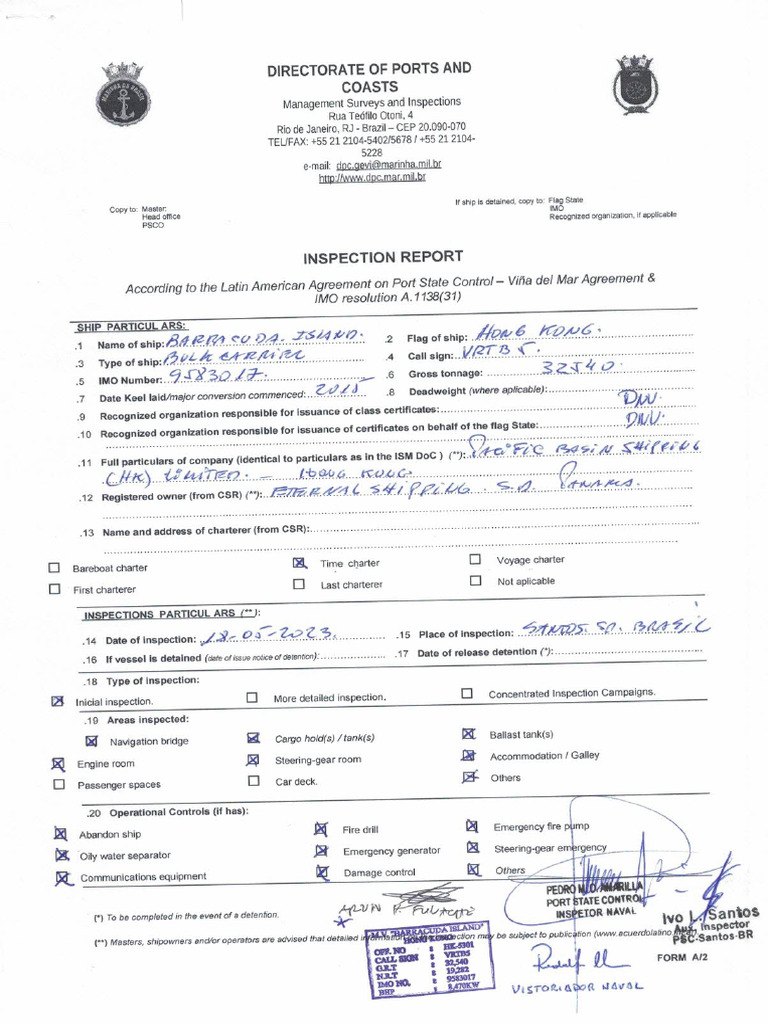 DIRECTORATE OF PORTS AND
COASTS
Management Surveys and Inspections
Rua Teófilo Otoni, 4
Rio de Janeiro, RJ - Brazil – CEP 20.090-070
TEL/FAX: +55 21 2104-5402/5678 / +55 21 2104-
5228
e-mail: dpc.gevi@marinha.mil.br
http://www.dpc.mar.mil.br
Copy to: Master:
Head office
PSCO
If ship is detained, copy to: Flag State
IMO
Recognized organization, if applicable
INSPECTION REPORT
According to the Latin American Agreement on Port State Control – Viña del Mar Agreement &
IMO resolution A.1138(31)
SHIP PARTICULARS:
.1 Name of ship: BARRACUDA ISLAND. .2 Flag of ship: HONG KONG.
.3 Type of ship: BULK CARRIER .4 Call sign: VRTB5.
.5 IMO Number: 9583017 .6 Gross tonnage: 32540.
.7 Date Keel laid/major conversion commenced: 2015 .8 Deadweight (where aplicable):
.9 Recognized organization responsible for issuance of class certificates: DNV.
.10 Recognized organization responsible for issuance of certificates on behalf of the flag State: DNV.
.11 Full particulars of company (identical to particulars as in the ISM DoC ) (**): PACIFIC BASIN SHIPPING
(HK) LIMITED. – HONG KONG
.12 Registered owner (from CSR) (**): ETERNAL SHIPPING S.A. PANAMA.
.13 Name and address of charterer (from CSR):
Bareboat charter Time charter Voyage charter
First charterer Last charterer Not aplicable
INSPECTIONS PARTICULARS (**):
.14 Date of inspection: 18-05-2023. .15 Place of inspection: SANTOS. SP. BRASIL
.16 If vessel is detained (date of issue notice of detention): .17 Date of release detention (*):
.18 Type of inspection:
Inicial inspection. More detailed inspection. Concentrated Inspection Campaigns.
.19 Areas inspected:
Navigation bridge Cargo hold(s) / tank(s) Ballast tank(s)
Engine room Steering-gear room Accommodation / Galley
Passenger spaces Car deck. Others
.20 Operational Controls (if has):
Abandon ship Fire drill Emergency fire pump
Oily water separator Emergency generator Steering-gear emergency
Communications equipment Damage control Others
PEDRO M.D. AMARILLA
PORT STATE CONTROL
INSPETOR NAVAL
Ivo L. Santos
Aux. Inspector
PSC-Santos-BR
(*) To be completed in the event of a detention.
(**) Masters, shipowners and/or operators are advised that detailed information may be subject to publication
M.V. "BARRACUDA ISLAND"
HONG KONG
OFF. NO : HK-5301
CALL SIGN : VRTB5
G.R.T : 32,540
N.R.T : 19,282
IMO NO. : 9583017
BHP : 8,470KW
FORM A/2
VISTORIADOR NAVAL